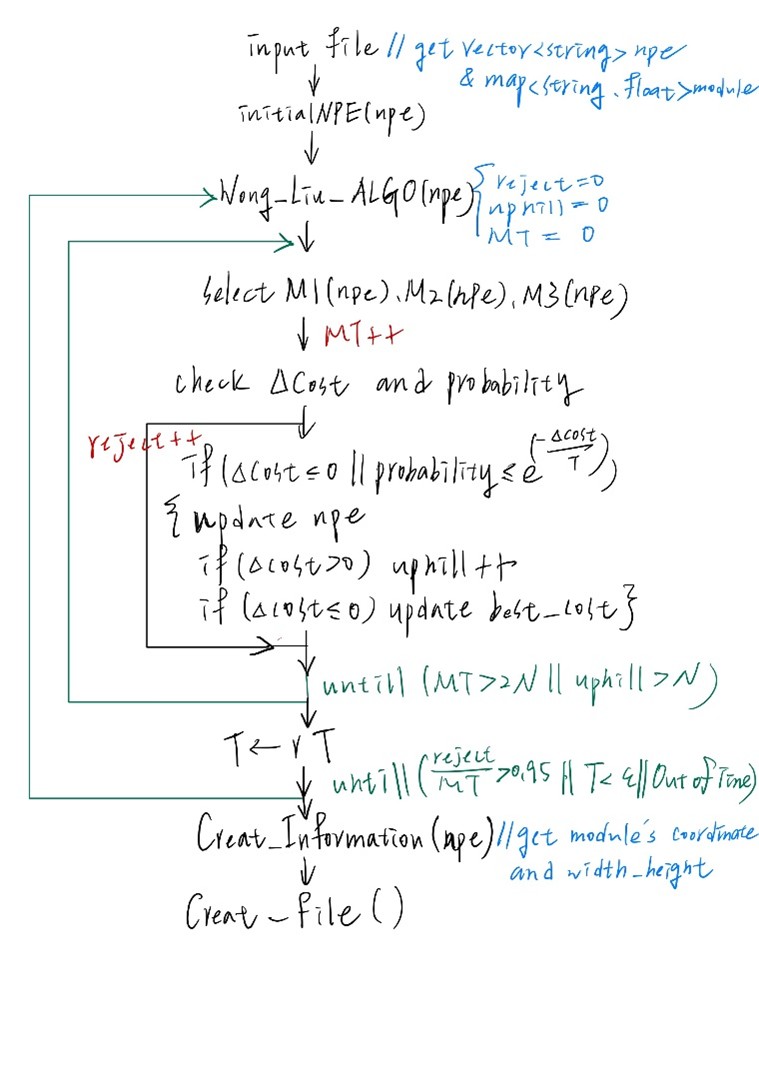 input file // get vector<string> npe
& map<string, float>module
initialNPE(npe)
Wong_Liu_ALGO(npe) { reject=0
uphill=0
MT = 0
select M1(npe)、M2(npe)、M3(npe)
MT++
check ΔCost and probability
reject++
if(Δcost≤0 || probability≤e^(-Δcost/T))
{ update npe
if(Δcost>0) uphill++
if(Δcost≤0) update best_cost}
untill (MT>2N || uphill>N)
T←rT
untill(reject/MT>0.95 || T<ε || Out of Time)
Creat_Information(npe)//get module's coordinate
and width_height
Creat_file()